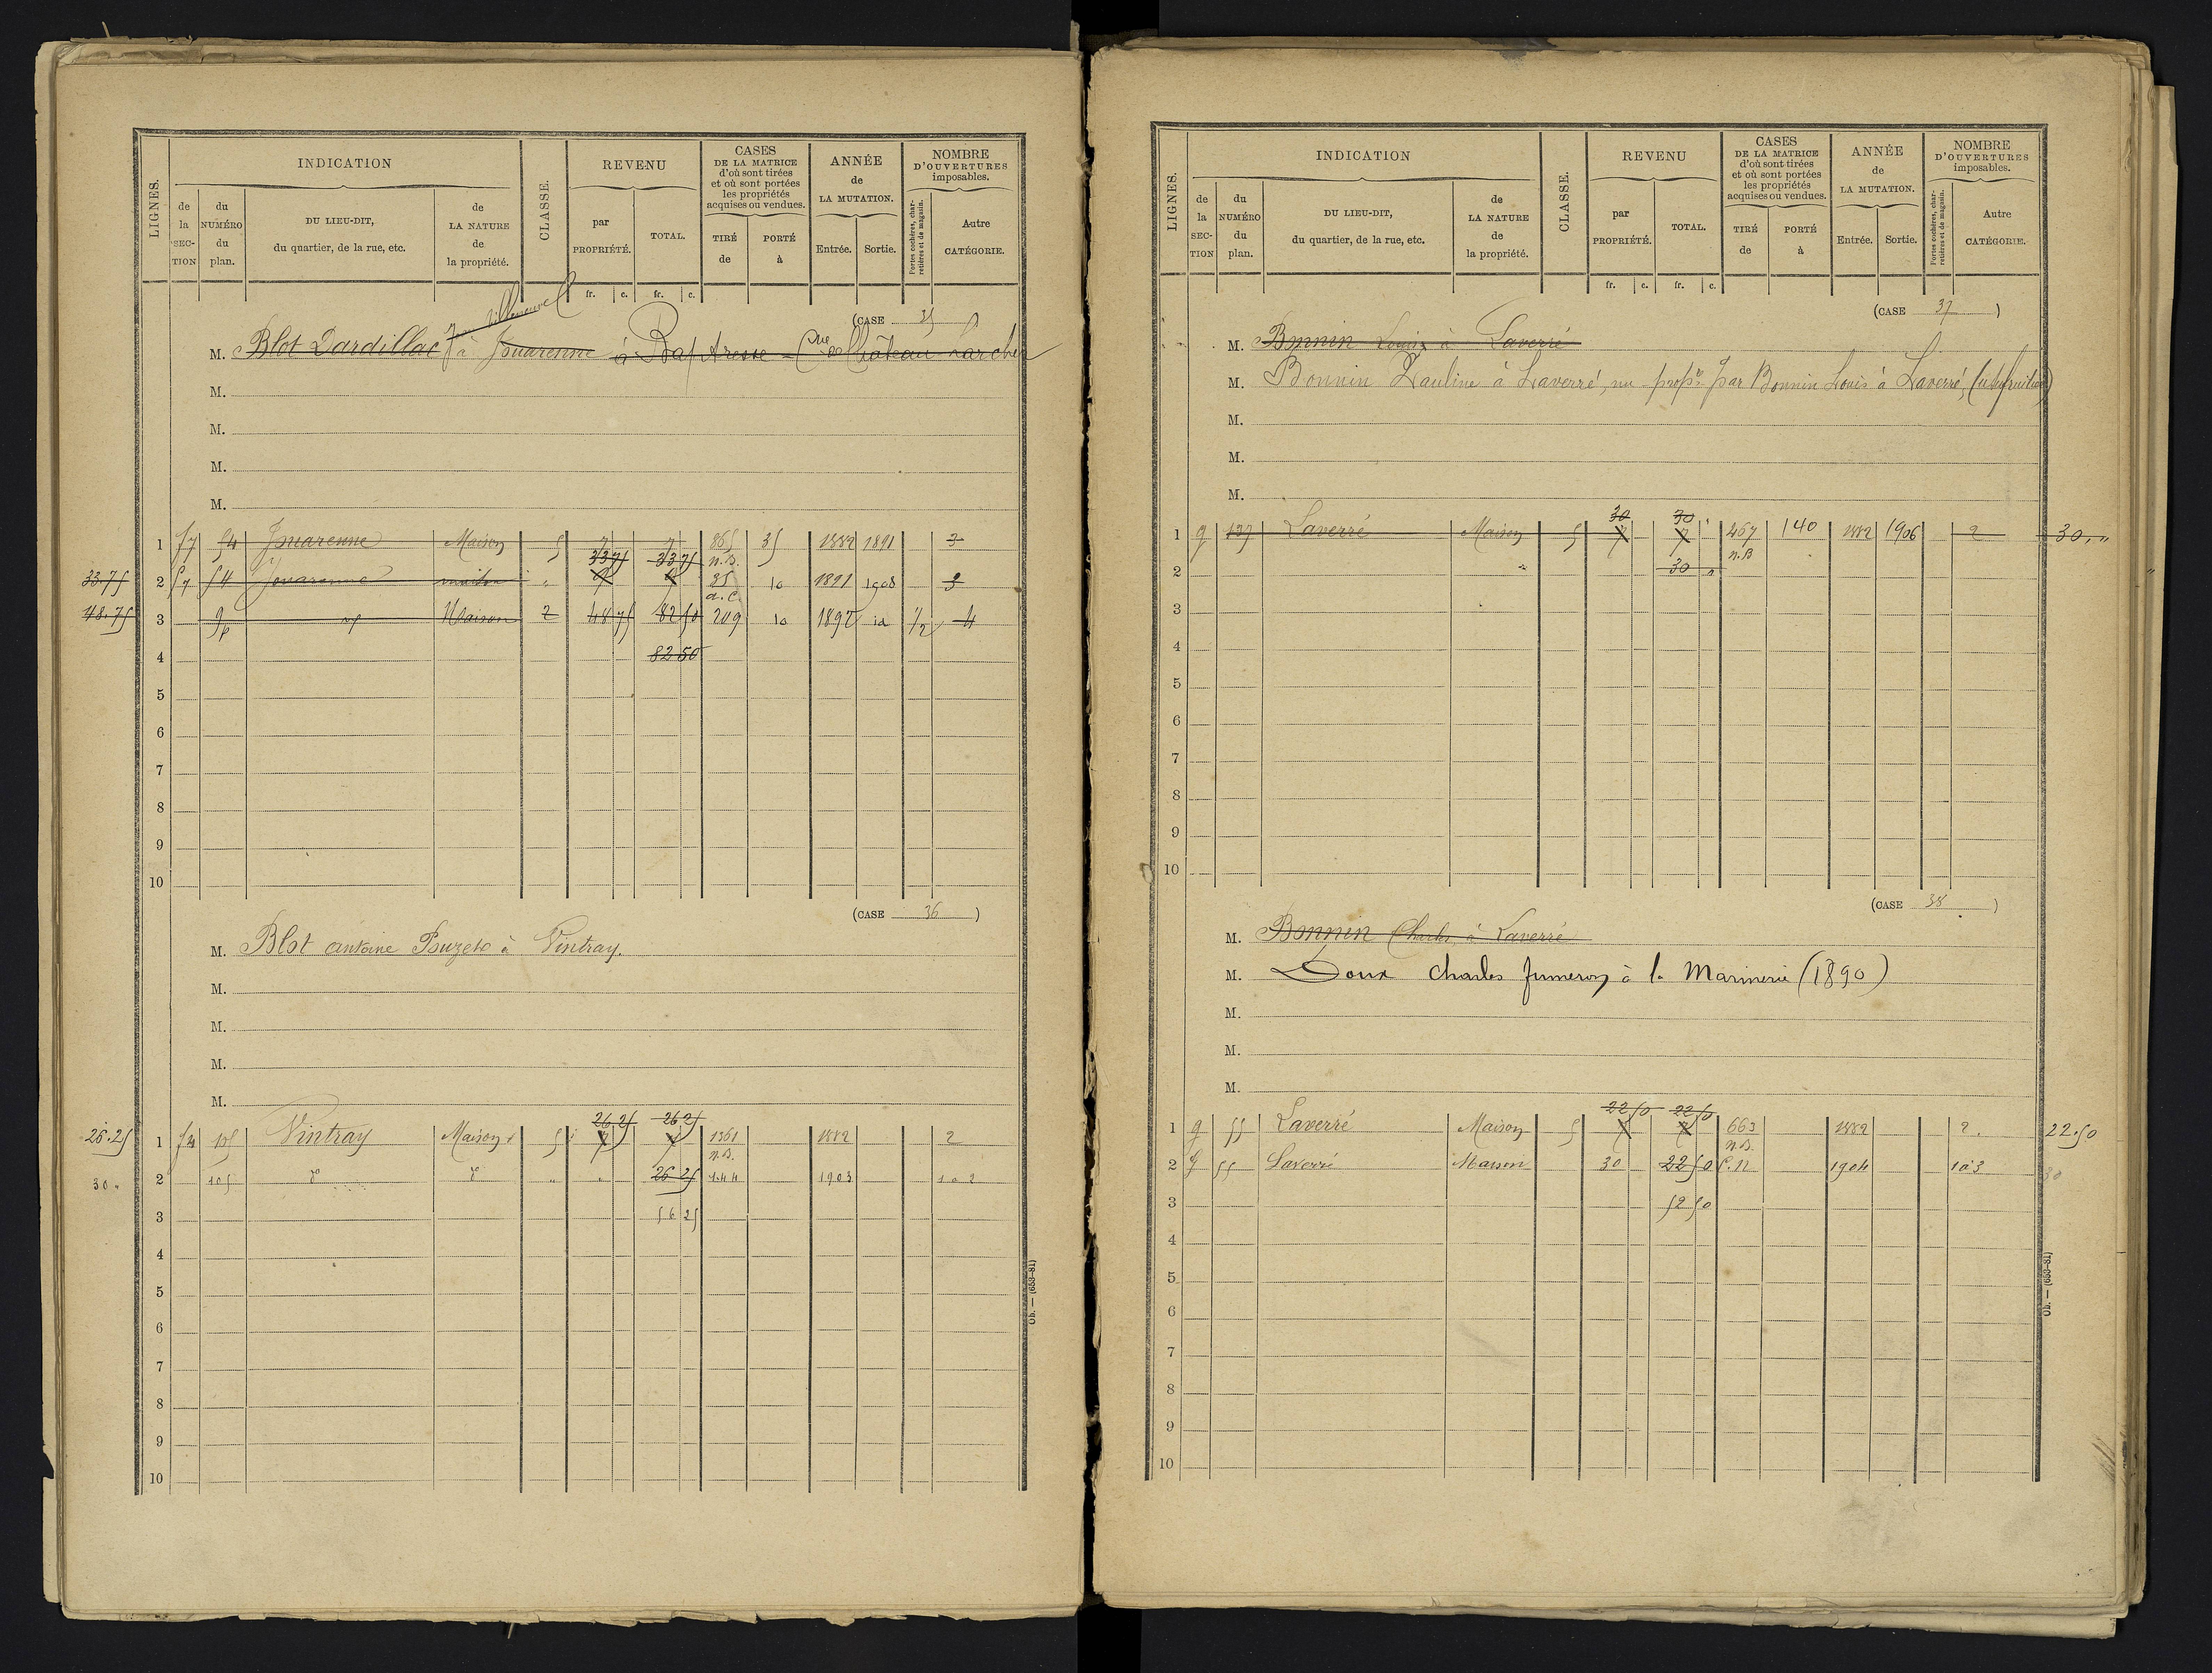 LIGNES. INDICATION CLASSE. REVENU CASES DE LA MATRICE d'où sont tirées et où sont portées les propriétés acquises ou vendues. ANNÉE de LA MUTATION. NOMBRE D'OUVERTURES imposables.
de la SECTION du NUMÉRO du plan. DU LIEU-DIT, du quartier, de la rue, etc. de LA NATURE de la propriété. par PROPRIÉTÉ. TOTAL. TIRÉ de PORTÉ à Entrée. Sortie. Portes cochères, charretières et de magasin. Autre CATÉGORIE.
fr. c. fr. c.
(CASE 35)
Jean Villeneuve
M. Blot Dardillac à Jouarenne à Baptresse Cne de Château Larcher
M.
M.
M.
M.
1 f7 54 Jouarenne Maison 5 7 7 865 35 1882 1891 3
33 75 33 75 n.B.
33.75 2 f7 54 Jouarenne maison " 35 10 1891 1908 3
a.c.
48.75 3 9p Maison 2 48 75 82 50 209 10 1892 id 1/2 4
4 82 50
5
6
7
8
9
10
(CASE 36)
M. Blot antoine Pouzet à Vintray.
M.
M.
M.
M.
26 25 26 25
26.25 1 105 Vintray Maison 5 7 7 1361 1882 2
n.B.
30 " 2 105 d° d° " " 26 25 1.44 1903 1 à 2
3 56 25
4
5
6
7
8
9
10
Ob. — (653-81)
LIGNES. INDICATION CLASSE. REVENU CASES DE LA MATRICE d'où sont tirées et où sont portées les propriétés acquises ou vendues. ANNÉE de LA MUTATION. NOMBRE D'OUVERTURES imposables.
de la SECTION du NUMÉRO du plan. DU LIEU-DIT, du quartier, de la rue, etc. de LA NATURE de la propriété. par PROPRIÉTÉ. TOTAL. TIRÉ de PORTÉ à Entrée. Sortie. Portes cochères, charretières et de magasin. Autre CATÉGORIE.
fr. c. fr. c.
(CASE 37)
M. Bonnin Louis à Laverré
M. Bonnin Pauline à Laverré, nu propre par Bonnin Louis à Laverré, (usufruitier)
M.
M.
M.
30 30
1 g 127 Laverré Maison 5 7 7 457 140 1882 1906 2 30."
n.B
2 30 "
3
4
5
6
7
8
9
10
(CASE 38)
M. Bonnin Charles à Laverré
M. Doux Charles fumeron à la Marinerie (1890)
M.
M.
M.
22 50 22 50
1 g 55 Laverré Maison 5 7 7 663 1882 2. 22.50
n.B.
2 g 55 Laverré Maison 30 22 50 C.N 1904 1 à 3 30
3 52 50
4
5
6
7
8
9
10
Ob. — (653-81)